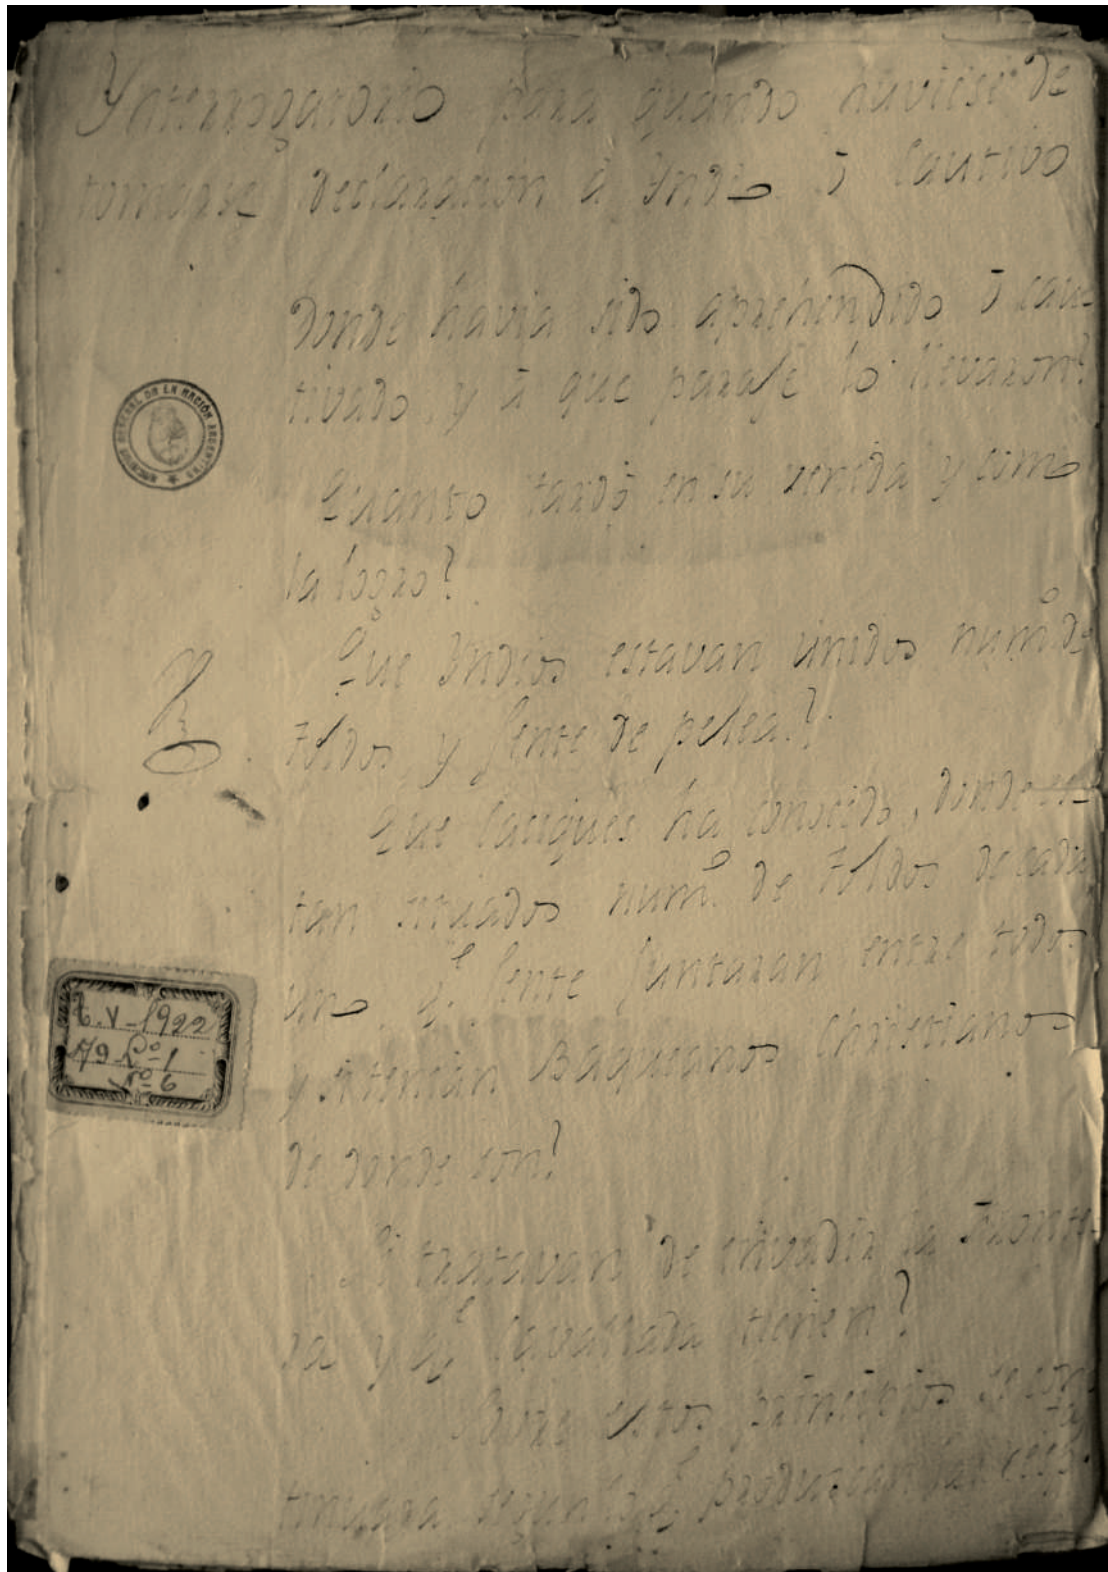 Ynterrogatorio para quando huviese de
tomarse declaracion â Yndio ô Cautivo
donde havia sido aprehendido ô cau-
tivado, y â que parage lo llevaron?
Quanto tardó en su venida y como
la logro?
Que Yndios estavan unidos num.o de
toldos y gente de pelea?
Que Caciques ha conocido, donde es-
tan situados num.o de toldos de cada
uno, q.e gente juntaran entre todos
y si tenian Baqueanos Christianos
de donde son?
Si tratavan de envadir la Fronte-
ra y q.e Cavallada tienen?
Sobre estos principios se con-
tinuara segun lo q.e produzcan las resp.tas
ARCHIVO GENERAL DE LA NACIÓN ARGENTINA
t. V - 1922
79 L.o 1
N.o 6